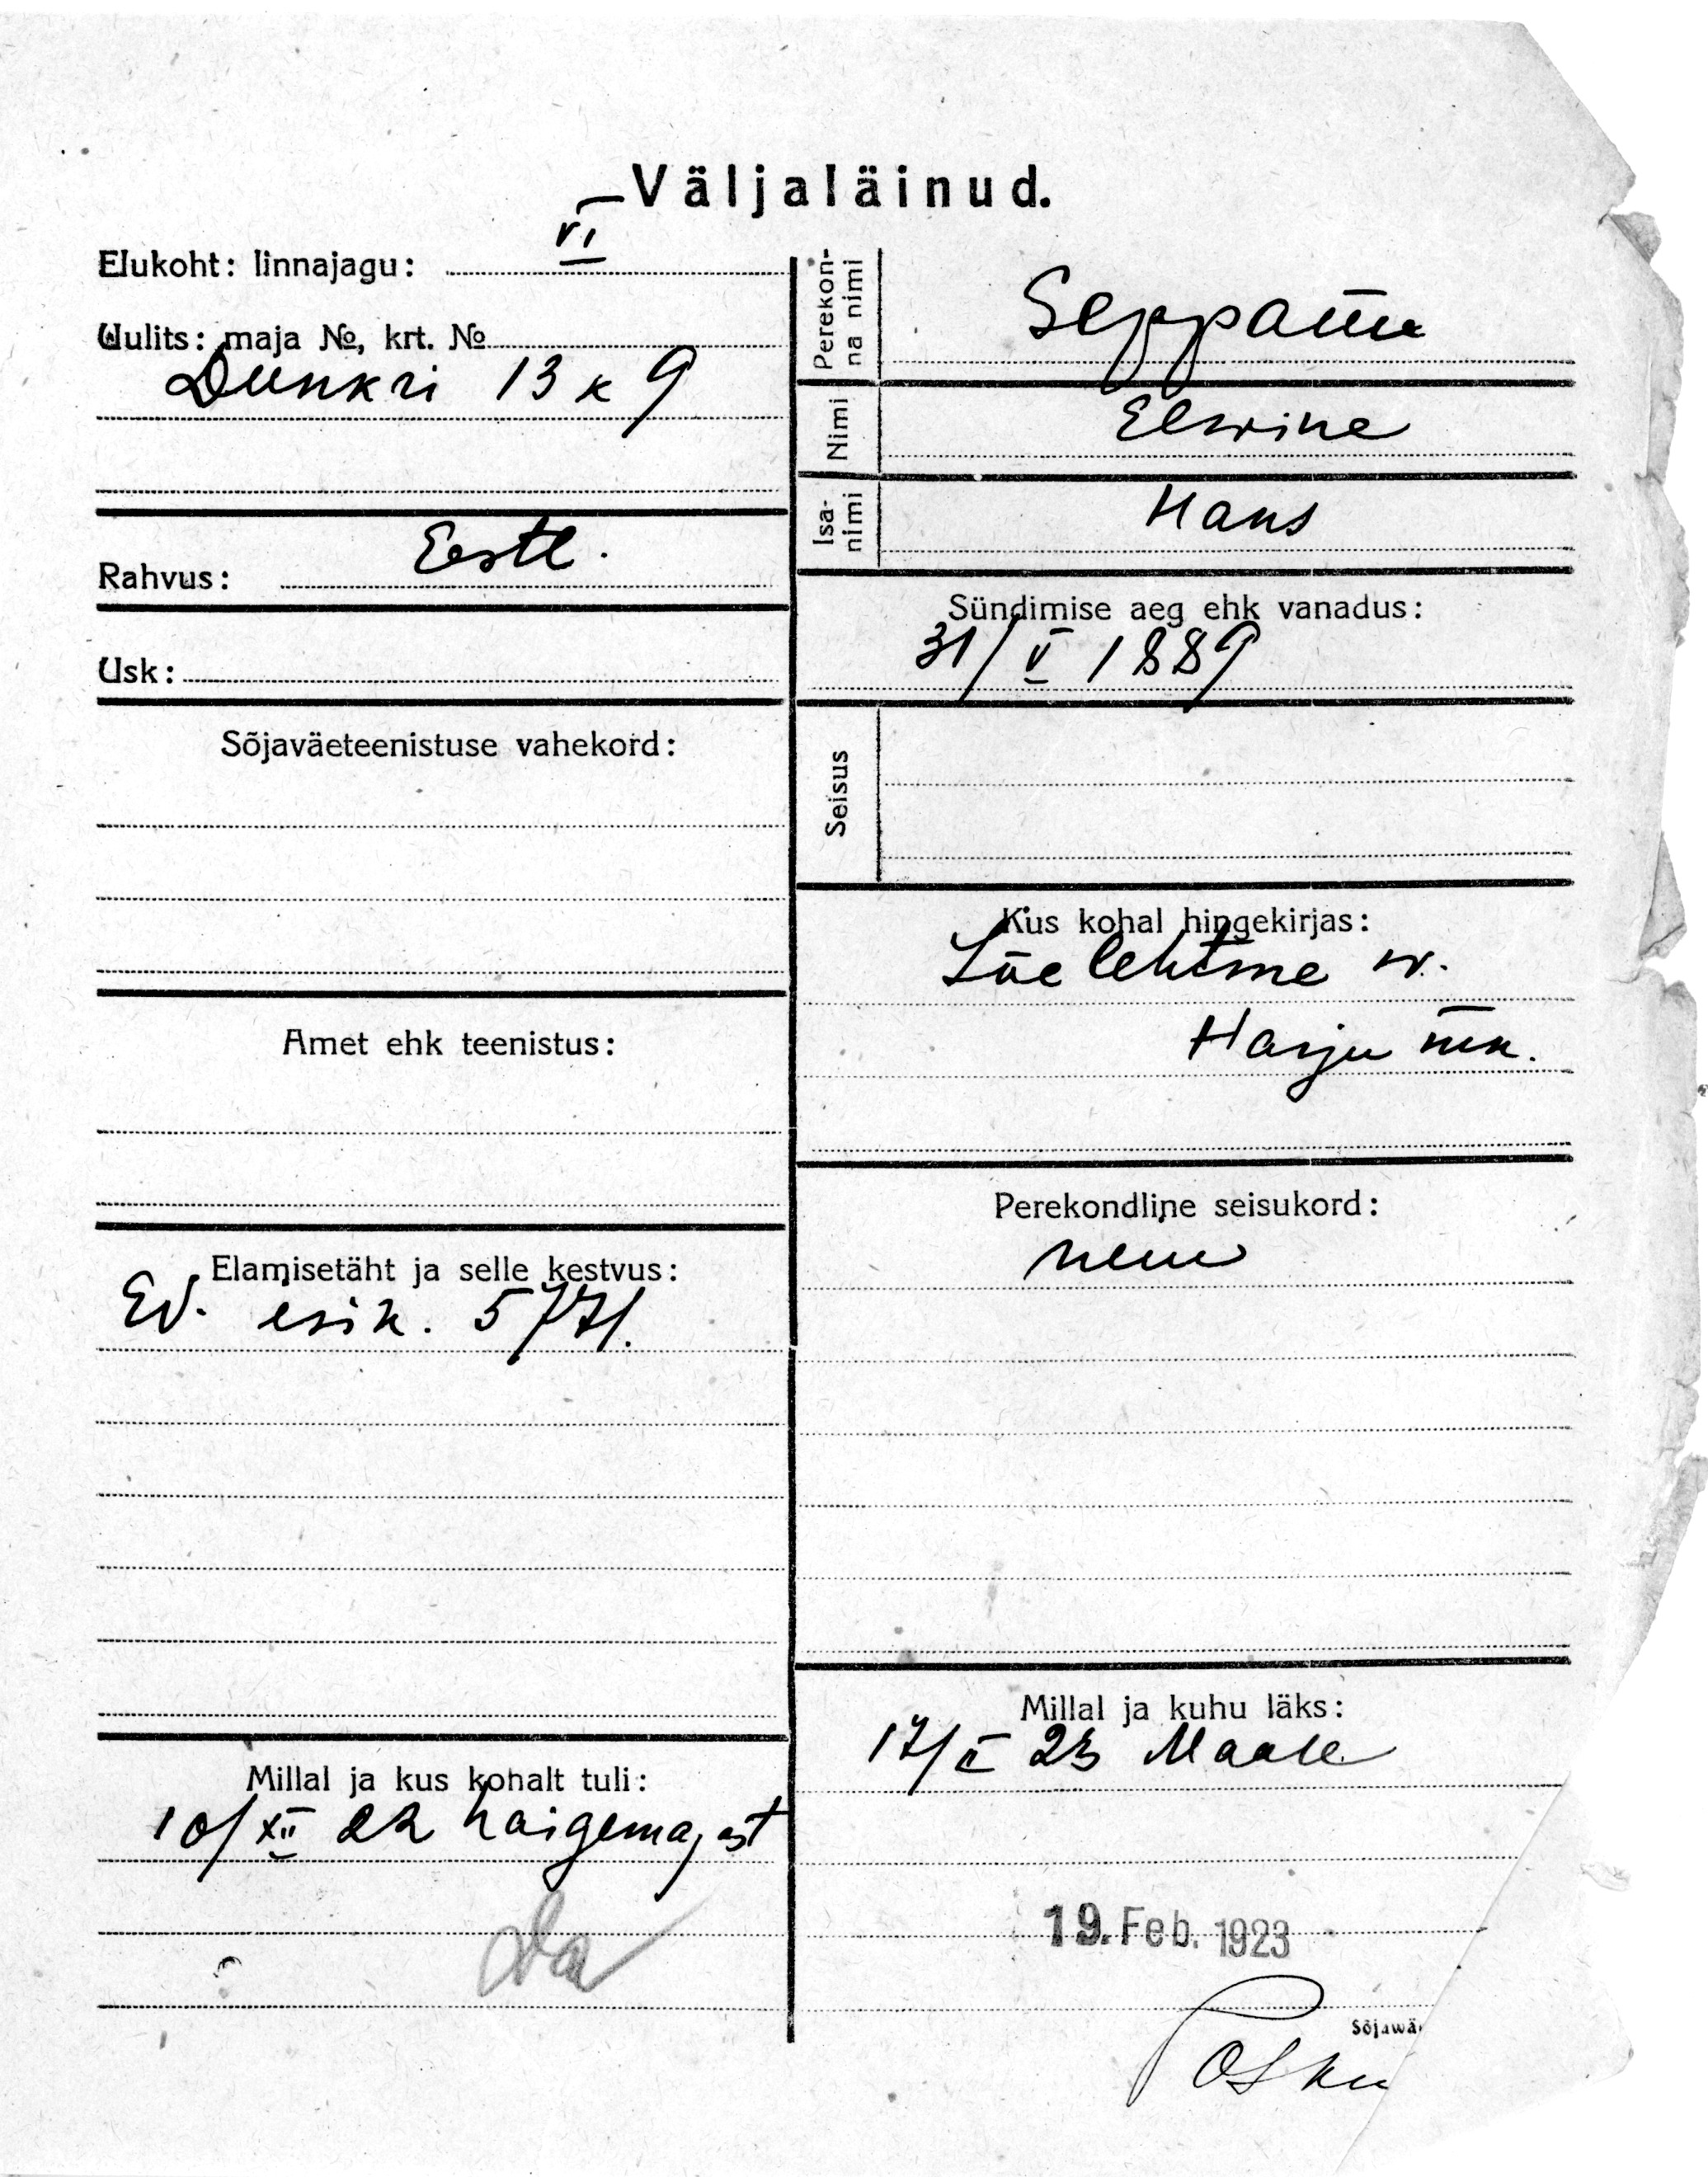 Väljaläinud.
Elukoht: linnajagu: VI
Uulits: maja №, krt. №
Dunkri 13 k 9
Rahvus: Eestl.
Usk:
Sõjaväeteenistuse vahekord:
Amet ehk teenistus:
Elamisetäht ja selle kestvus:
Ev. isik. 5771.
Millal ja kus kohalt tuli:
10/XII 22 haigemajast
Perekon-
na nimi
Nimi
Elwine
Isa-
nimi
Hans
Sündimise aeg ehk vanadus:
31/V 1889
Seisus
Kus kohal hingekirjas:
Jõelehtme w.
Harju mk.
Perekondline seisukord:
neiu
Millal ja kuhu läks:
17/II 23 Maale
19. Feb. 1923
Sõjawä